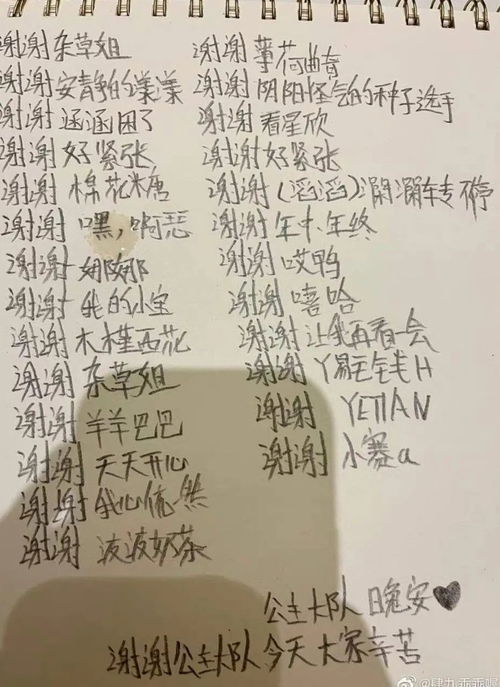 谢谢 杂草姐
谢谢 安静的漾漾
谢谢 涵涵困了
谢谢 好紧张
谢谢 棉花米唐
谢谢 嘿,啊恶
谢谢 娜娜
谢谢 我的小宝
谢谢 木槿西花
谢谢 杂草姐
谢谢 羊羊巴巴
谢谢 天天开心
谢谢 我心依然
谢谢 波波奶茶
谢谢
谢谢 阴阳怪气的种子选手
谢谢 看星欣
谢谢 好紧张
谢谢 (滔滔)澜澜车专不停
谢谢 年中年终
谢谢 哎鸭
谢谢 嘻哈
谢谢 让我再看一会
谢谢
谢谢 YETIAN
谢谢 小赛a
公主大队 晚安♥
谢谢公主大队 今天 大家辛苦